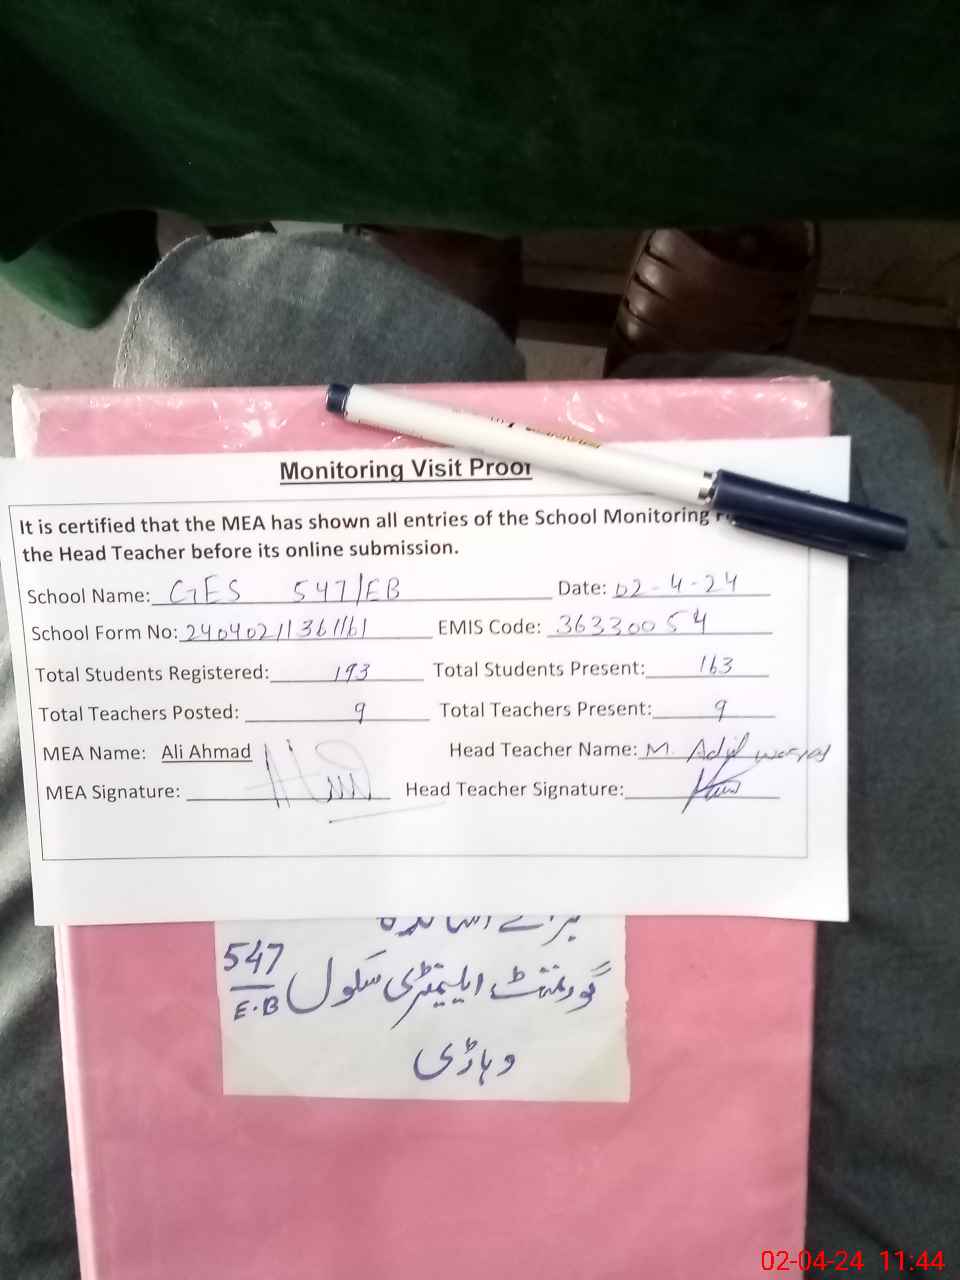 Monitoring Visit Proof
It is certified that the MEA has shown all entries of the School Monitoring
the Head Teacher before its online submission.
School Name: GES 547/EB Date: 02-4-24
School Form No: 24040211361161 EMIS Code: 36330054
Total Students Registered: 193 Total Students Present: 163
Total Teachers Posted: 9 Total Teachers Present: 9
MEA Name: Ali Ahmad Head Teacher Name: M. Adil
MEA Signature: Head Teacher Signature:
برائے اساتذہ
گورنمنٹ ایلیمنٹری سکول 547/E.B
وہاڑی
02-04-24 11:44